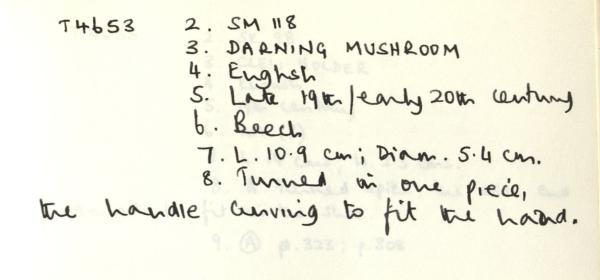 T4653 2. SM 118
3. DARNING MUSHROOM
4. English
5. Late 19th/early 20th century
6. Beech
7. L. 10.9 cm; Diam. 5.4 cm.
8. Turned in one piece,
the handle curving to fit the hand.
9. A p.323; p.308